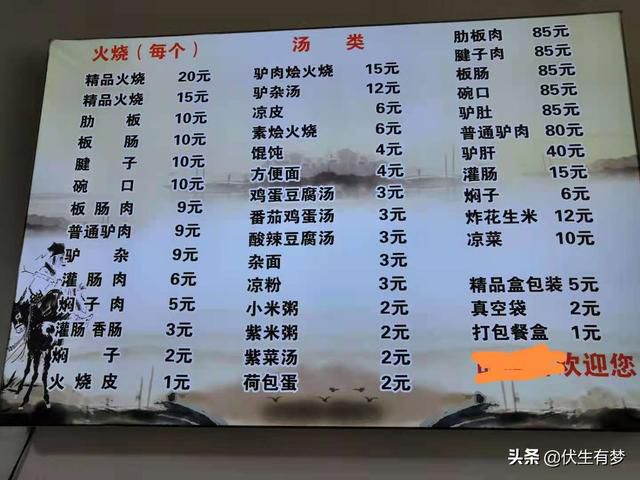 火烧（每个）
精品火烧 20元
精品火烧 15元
肋板 10元
板肠 10元
腱子 10元
碗口 10元
板肠肉 9元
普通驴肉 9元
驴杂 9元
灌肠肉 6元
焖子肉 5元
灌肠香肠 3元
焖子 2元
火烧皮 1元
汤类
驴肉烩火烧 15元
驴杂汤 12元
凉皮 6元
素烩火烧 6元
馄饨 4元
方便面 4元
鸡蛋豆腐汤 3元
番茄鸡蛋汤 3元
酸辣豆腐汤 3元
杂面 3元
凉粉 3元
小米粥 2元
紫米粥 2元
紫菜汤 2元
荷包蛋 2元
肋板肉 85元
腱子肉 85元
板肠 85元
碗口 85元
驴肚 85元
普通驴肉 80元
驴肝 40元
灌肠 15元
焖子 6元
炸花生米 12元
凉菜 10元
精品盒包装 5元
真空袋 2元
打包餐盒 1元
欢迎您
头条 @伏生有梦